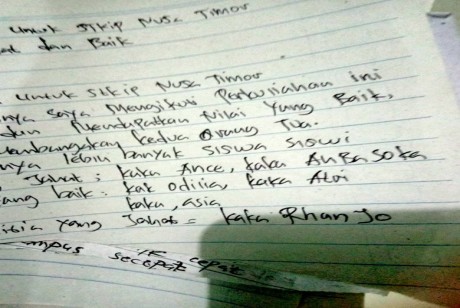 untuk STKIP Nusa Timor
dan Baik
untuk STKIP Nusa Timor
nya saya Mengikuti Perkuliahan ini
Mendapatkan Nilai Yang Baik,
Membanggakan kedua Orang Tua.
nya lebih banyak siswa siswi
Jahat : kaka Ance, kaka
baik : kak odilia, kaka Aloi
kaka, asia
yang Jahat = kaka Rhan Jo
secepat